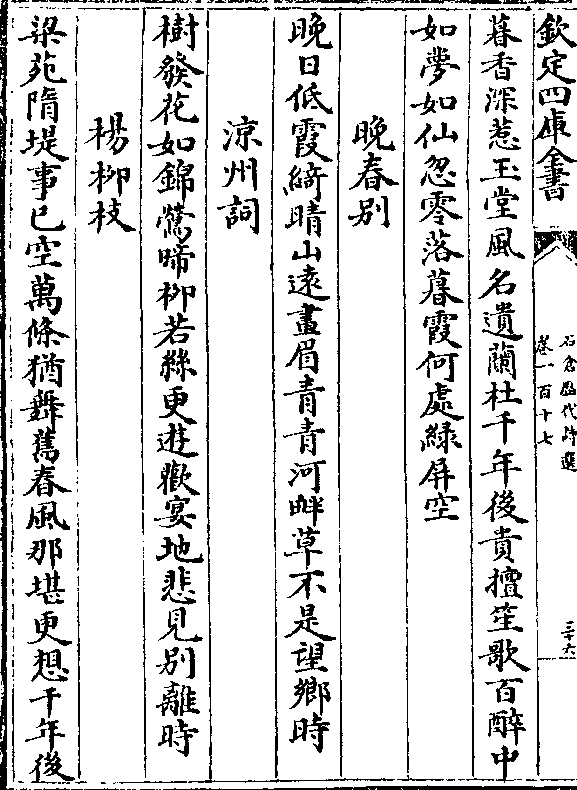 欽定四庫全書
石倉歷代詩選
卷一百十七
三十六
暮香深惹玉堂風名遺蘭杜千年後貴擅笙歌百醉中
如夢如仙忽零落暮霞何處綠屏空
晚春別
晚日低霞綺晴山遠畫眉青青河畔草不是望鄉時
涼州詞
樹發花如錦鶯啼柳若絲更遊歡宴地悲見別離時
楊柳枝
梁苑隋堤事已空萬條猶舞舊春風那堪更想千年後